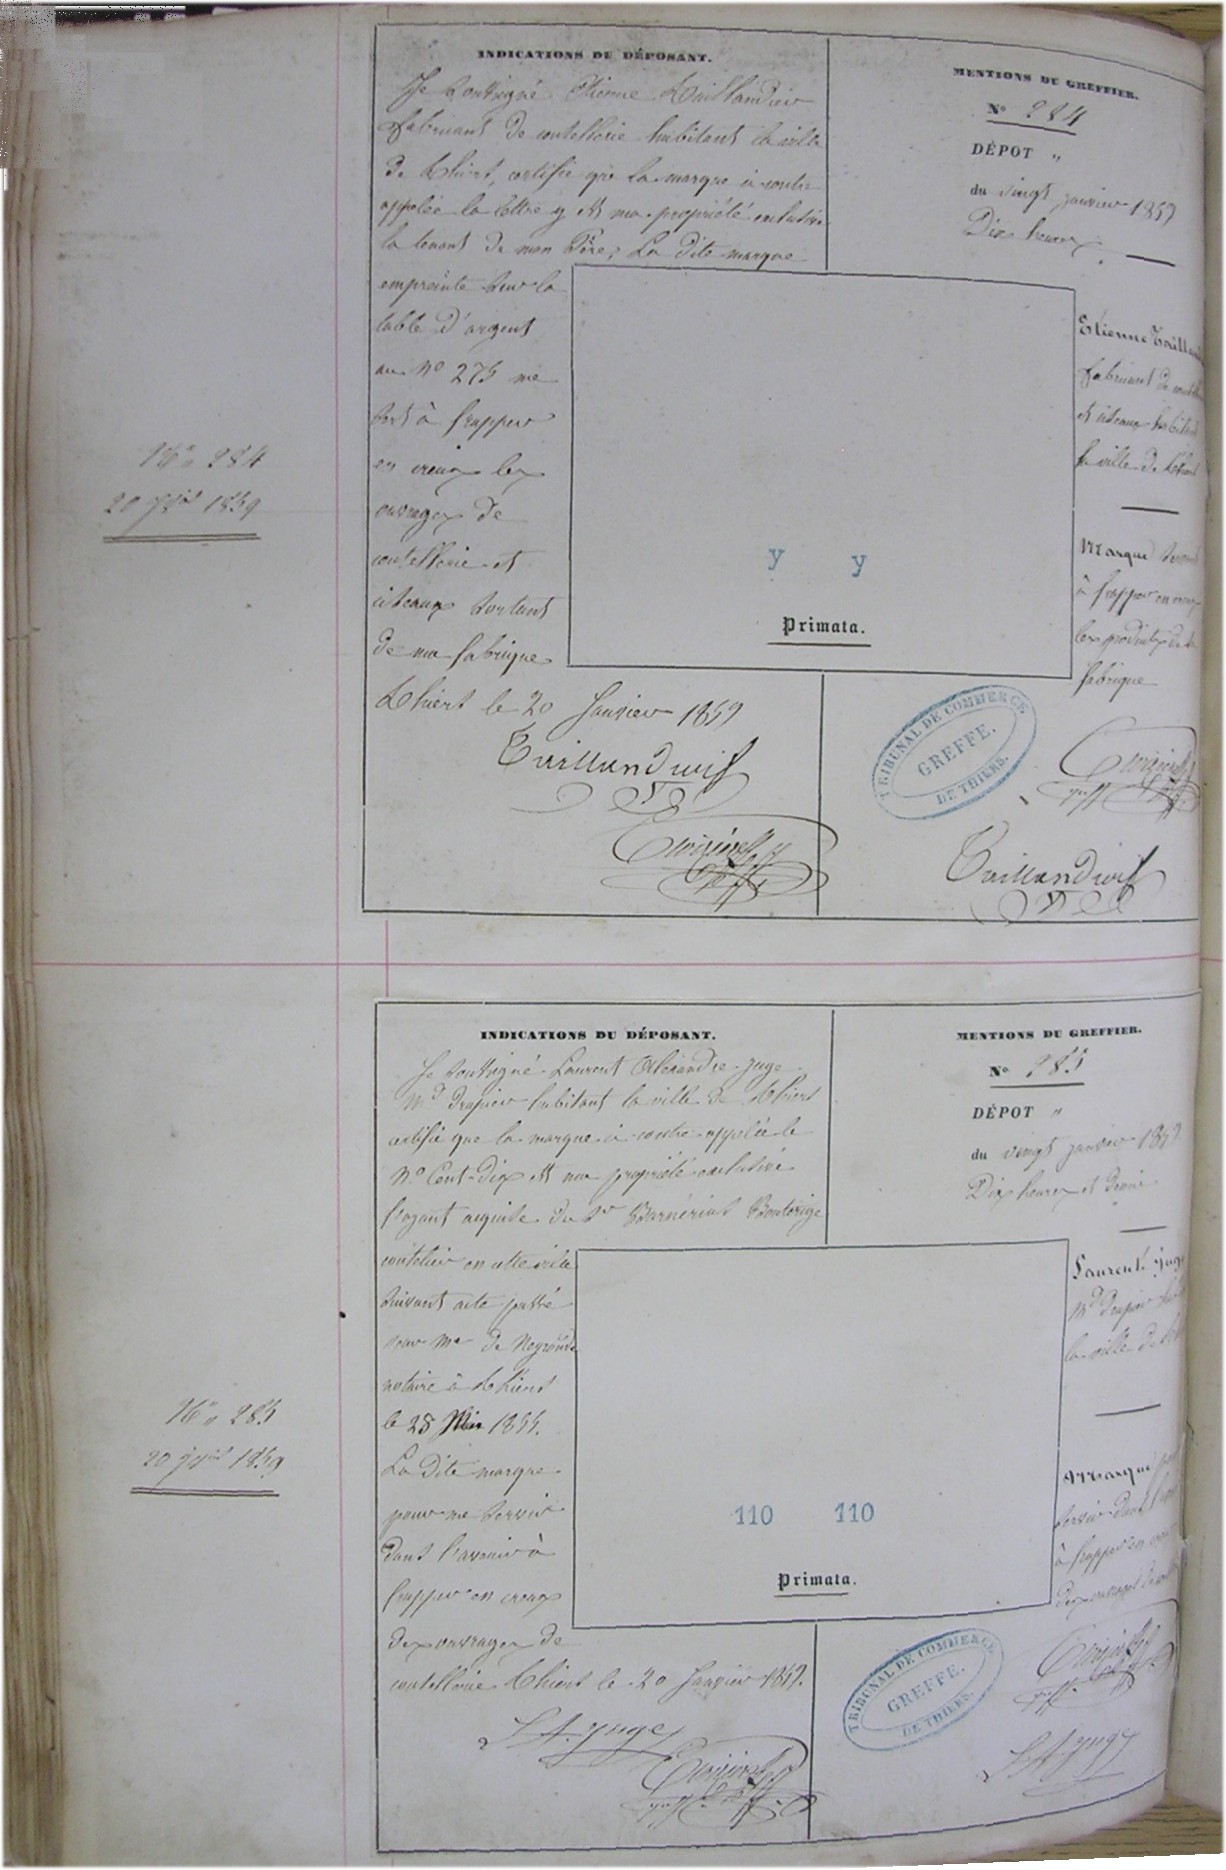 INDICATIONS DU DÉPOSANT.
Je soussigné Etienne Taillandier
fabricant de coutellerie habitant la ville
de Thiers, certifie que la marque ci contre
appelée la lettre y est ma propriété exclusive
la tenant de mon Père; La dite marque
empreinte sur la
table d'argent
au No 275 me
sert à frapper
en creux les
ouvrages de
coutellerie et
ciseaux sortant
de ma fabrique
Thiers le 20 Janvier 1859
Taillandier
MENTIONS DU GREFFIER.
No 284
DÉPOT "
du vingt janvier 1859
Dix heures
Etienne Tailland
fabricant de
et ciseaux habitant
la ville de Thiers
Marque servant
à frapper en creux
les produits de sa
fabrique
No 284
20 Jer 1859
y y
Primata.
TRIBUNAL DE COMMERCE
GREFFE.
DE THIERS.
Taillandier
INDICATIONS DU DÉPOSANT.
Je soussigné Laurent Alexandre Juge
Md Drapier habitant la ville de Thiers
certifie que la marque ci contre appelée le
No Cent-Dix est ma propriété exclusive
l'ayant acquise du Sr Barnérias Bouterige
coutelier en cette ville
suivant acte passé
sous Me de
notaire à Thiers
le 28 Mai 1855.
La dite marque
pour me servir
dans l'avenir à
frapper en creux
des ouvrages de
coutellerie Thiers le 20 Janvier 1859.
L A Juge
MENTIONS DU GREFFIER.
No 285
DÉPOT "
du vingt janvier 1859
Dix heures et demie
Laurent Juge
Md Drapier
la ville de
Marque pour
servir dans l'
à frapper en creux
des ouvrages de
No 285
20 Jer 1859
110 110
Primata.
TRIBUNAL DE COMMERCE
GREFFE.
DE THIERS.
L A Juge